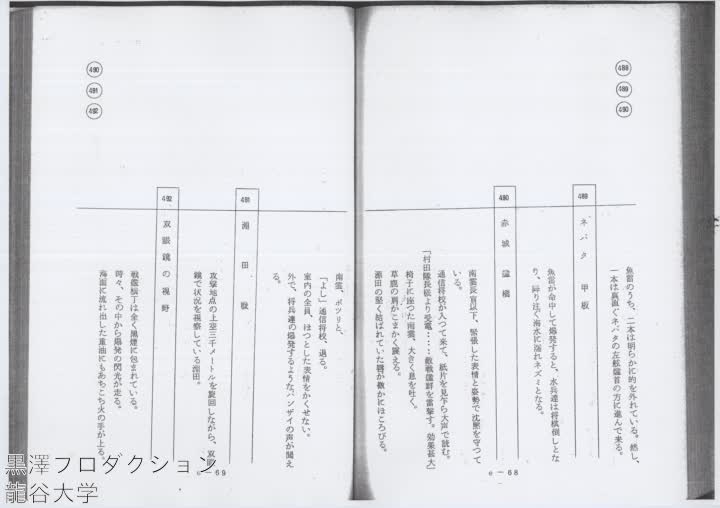 488
489
490
魚雷のうち、二本は明らかに的を外れている。然し、
一本は真直ぐネバタの左舷艦首の方に進んで来る。
489 ネバタ 甲板
魚雷が命中して爆発すると、水兵達は将棋倒しとな
り、降り注ぐ海水に濡れネズミとなる。
490 赤城 艦橋
南雲長官以下、緊張した表情と姿勢で沈黙を守つて
いる。
通信将校が入つて来て、紙片を見乍ら大声で読む。
「村田隊長機より受電‥‥敵戦艦群を雷撃す。効果甚大」
椅子に座つた南雲、大きく息を吐く。
草鹿の肩がこまかく震える。
源田の堅く結ばれていた唇が微かにほころびる。
e－68
490
491
492
南雲、ポツリと、
「よし」通信将校、退る。
室内の全員、ほつとした表情をかくせない。
外で、将兵達の爆発するようなバンザイの声が聞え
る。
491 淵田機
攻撃地点の上空三千メートルを旋回しながら、双眼
鏡で状況を視察している淵田。
492 双眼鏡の視野
戦艦横丁は全く黒煙に包まれている。
時々、その中から爆発の閃光が走る。
海面に流れ出した重油にもあちこち火の手が上る。
e－69
黒澤プロダクション
龍谷大学